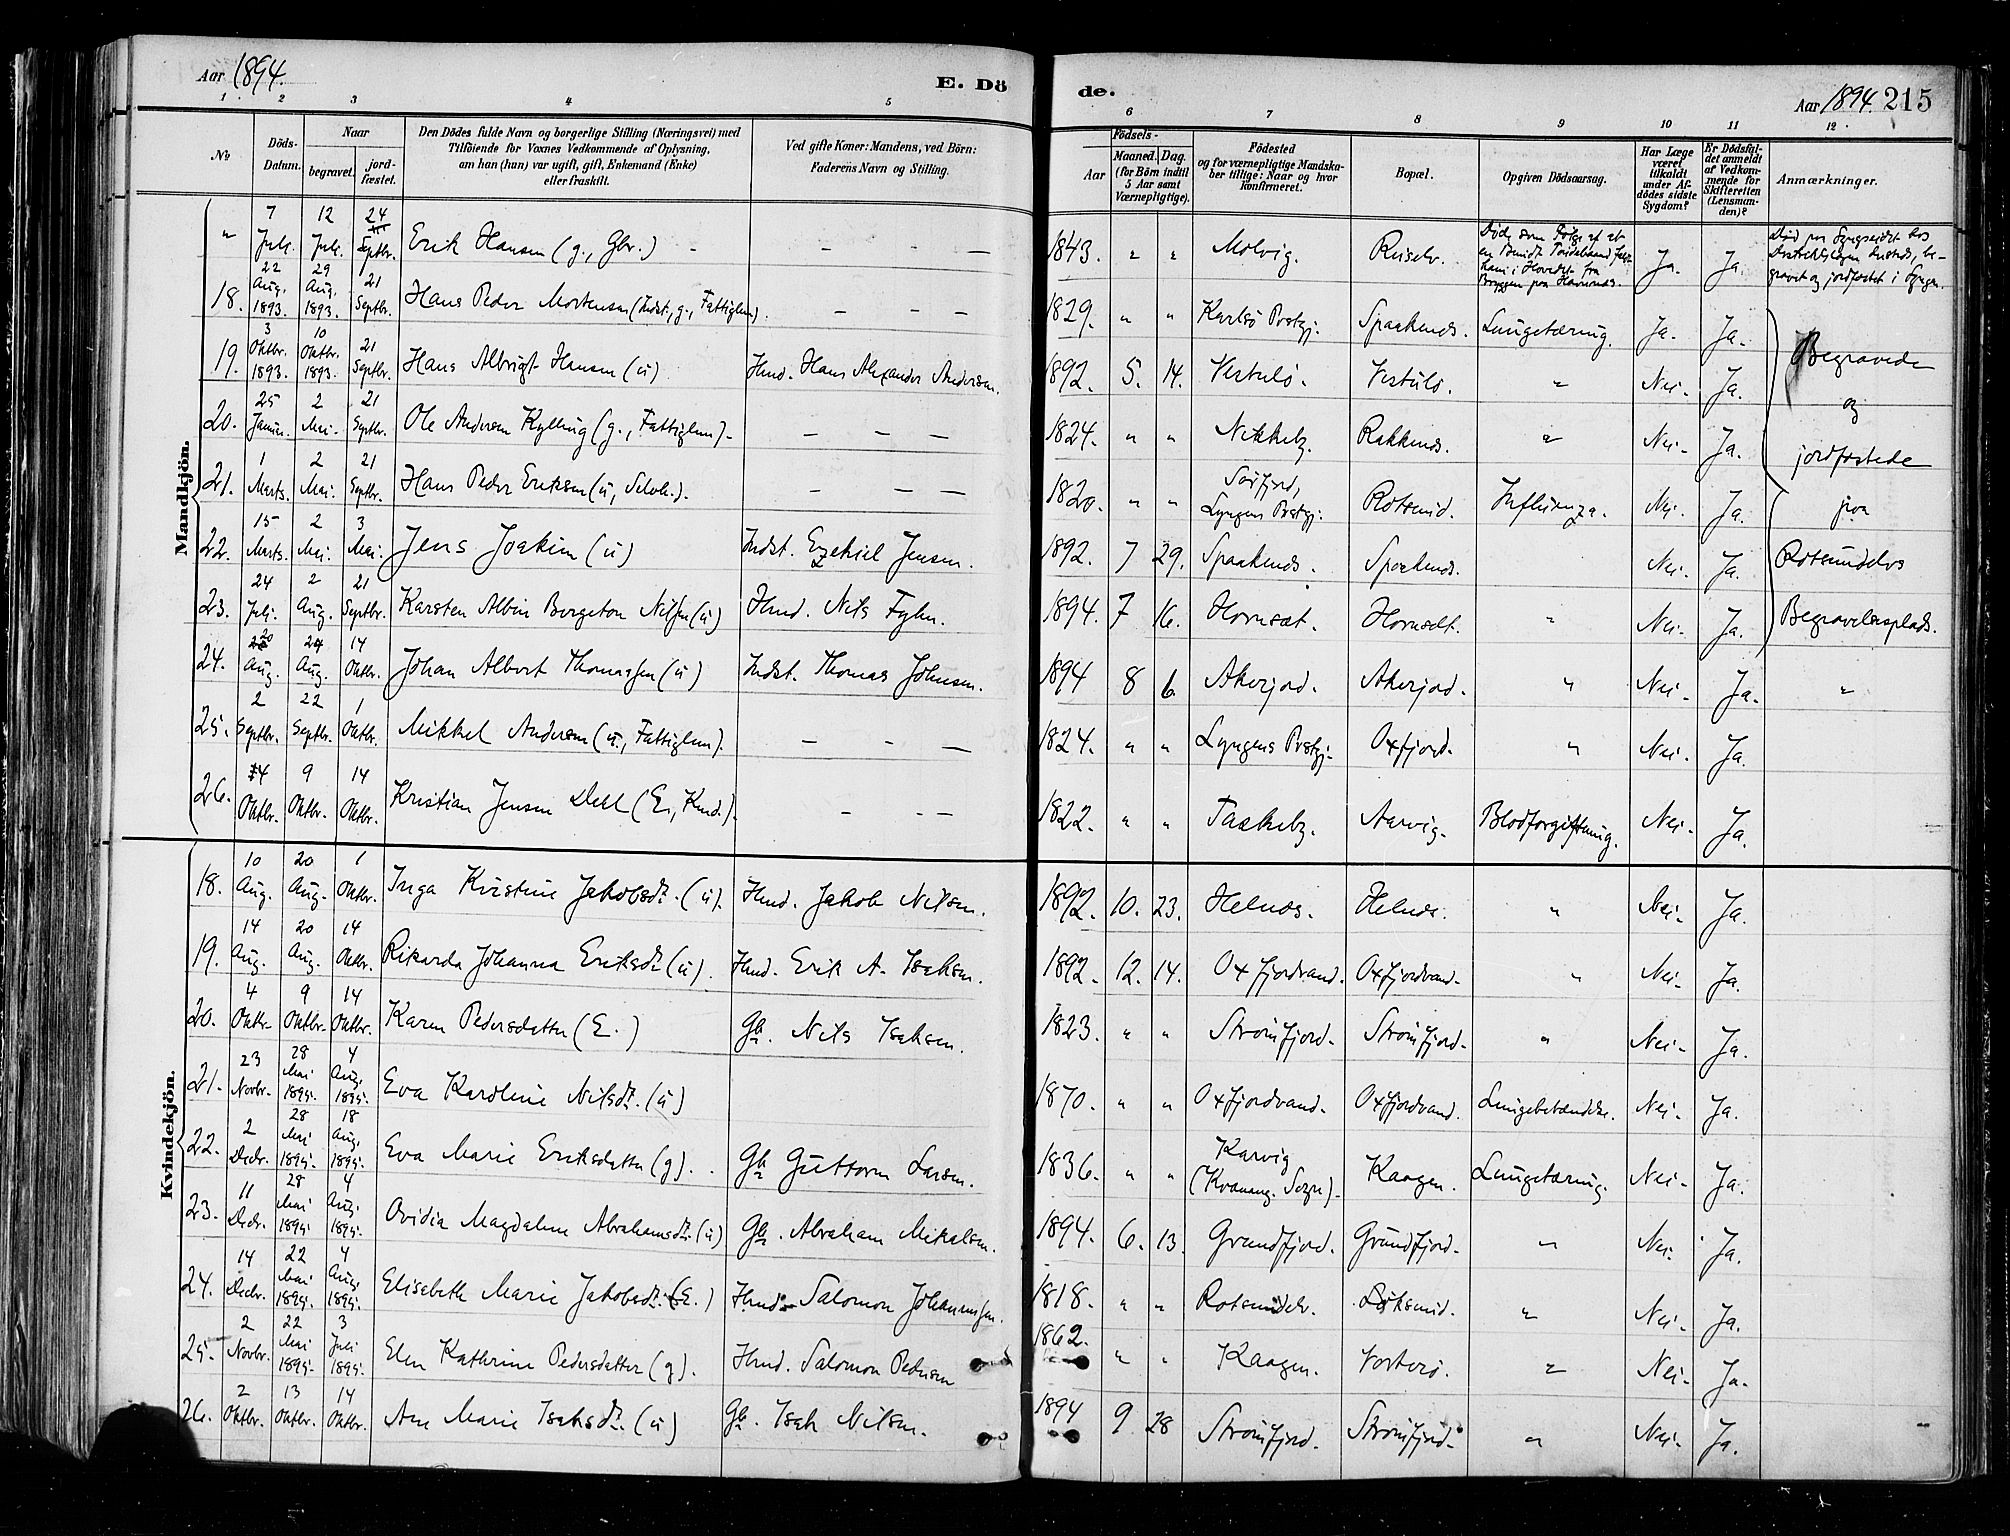 Aar 1894.
E. Dö
de.
Aar 1894. 215
1 2 3 4 5 6 7 8 9 10 11 12
No
Döds-Datum.
Naar
begravet.
jord-fæstet.
Den Dödes fulde Navn og borgerlige Stilling (Næringsvei) med
Tilföiende for Voxnes Vedkommende af Oplysning,
am han (hun) var ugift, gift, Enkemand (Enke)
eller fraskilt.
Ved gifte Koner: Mandens, ved Börn:
Faderens Navn og Stilling.
Födsels-
Aar
Maaned. Dag.
(for Börn indtil
5 Aar samt
Værnepligtige).
Födested
og for værnepligtige Mandska-
ber tillige: Naar og hvor
konfirmeret.
Bopæl.
Opgiven Dödsaarsag.
Har Læge
været
tilkaldt
under Af-
dödes sidste
Sygdom?
Er Dödsfal-
det anmeldt
af Vedkom-
mende for
Skifteretten
(Lensman-
den)?
Anmærkninger.
Mandkjön.
" 7 Juli. 12 Juli. 24 Septbr. Erik Hansen (g., Gbr.) - - - — 1843. " " Molvig. Reiselv. Ja. Ja.
18. 22 Aug. 1893. 29 Aug. 1893. 21 Septbr. Hans Peder Mortensen (Indst., g., Fattiglem). — — — 1829. " " Karlsö Prstgj. Spaakenæs. Lungetæring. Ja. Ja.
19. 3 Oktbr. 1893. 10 Oktbr. 1893. 21 Septbr. Hans Albrigt Hansen (u) Hmd. Hans Alexander Andersen. 1892. 5. 14. Vestulö. Vestulö. " Nei. Ja.
20. 25 Januar. 2 Mai. 21 Septbr. Ole Andersen Kylling (g., Fattiglem). — — — 1824. " " Nikkelby. Rakkenæs. " Nei. Ja.
21. 1 Marts. 2 Mai. 21 Septbr. Hans Peder Eriksen (u, Selvh.). — — — 1820. " " Sörfjord, Lyngens Prstgj. Rotsund. Influenza. Nei. Ja.
22. 15 Marts. 2 Mai. 3 Mai. Jens Joakim (u) Indst. Ezekiel Jensen. 1892. 7 29. Spaakenæs. Spaakenæs. Nei. Ja.
23. 24 Juli. 2 Aug. 21 Septbr. Karsten Albin Borgeton Nilsen (u) Hmd. Nils Fyhn. 1894. 7 16. Hornsæt. Hornsæt. " Nei. Ja.
Begravede
og
jordfæstede
paa
Rotsundelvs
Begravelsesplads.
24. 20 Aug. 24 Aug. 14 Oktbr. Johan Albert Thomassen (u) Indst. Thomas Johnsen. 1894 8 6. Akerjord. Akerjord. " Nei. Ja. "
25. 2 Septbr. 22 Septbr. 1 Oktbr. Mikkel Andersen (u., Fattiglem). — - — 1824. " " Lyngens Prstgj. Oxfjord. " Nei. Ja.
26. 4 Oktbr. 9 Oktbr. 14 Oktbr. Kristian Jensen Dehl (E., Kmd.). - - — 1822. " " Taskeby. Aarvig. Blodforgiftning. Nei. Ja.
Kvindekjön.
18. 10 Aug. 20 Aug. 1 Oktbr. Inga Kristine Jakobsdt. (u). Hmd. Jakob Nilsen. 1892. 10. 23. Helnæs. Helnæs. " Nei. Ja.
19. 14 Aug. 20 Aug. 14 Oktbr. Rikarda Johanna Eriksdt. (u). Hmd. Erik A. Isaksen. 1892. 12. 14. Oxfjordvand. Oxfjordvand. " Nei. Ja.
20. 4 Oktbr. 9 Oktbr. 14 Oktbr. Karen Pedersdatter (E.) Gb. Nils Isaksen. 1823. " " Strömfjord. Strömfjord. " Nei. Ja.
21. 23 Novbr. 28 Mai 1895. 4 Aug. 1895. Eva Karoline Nilsdt. (u) 1870. " " Oxfjordvand. Oxfjordvand. Lungebetændelse. Nei. Ja.
22. 2 Decbr. 28 Mai 1895. 18 Aug. 1895. Eva Marie Eriksdatter (g). Gb. Guttorm Larsen. 1836. " " Karvig (Kvænang. Sogn). Kaagen. Lungetæring. Nei. Ja.
23. 11 Decbr. 28 Mai 1895 4 Aug. 1895. Ovidia Magdalena Abrahamsdt. (u) Gb. Abraham Mikalsen. 1894. 6. 13. Grundfjord. Grundfjord. " Nei. Ja.
24. 14 Decbr. 22 Mai 1895. 4 Aug. 1895. Elisabeth Marie Jakobsdt. (E.) Hmd. Salomon Johannesen. 1818. " " Rotsundelv. Löksund. " Nei. Ja.
25. 2 Novbr. 22 Mai 1895. 3 Juli 1895. Elen Kathrine Pedersdatter (g). Hmd. Salomon Pedersen 1862. " " Kaagen. Vorterö. " Nei. Ja.
26. 2 Oktbr. 13 Oktbr. 14 Oktbr. Ane Marie Isaksdt. (u) Gb. Isak Nilsen. 1894 9 28 Strömfjord. Strömfjord. " Nei. Ja.